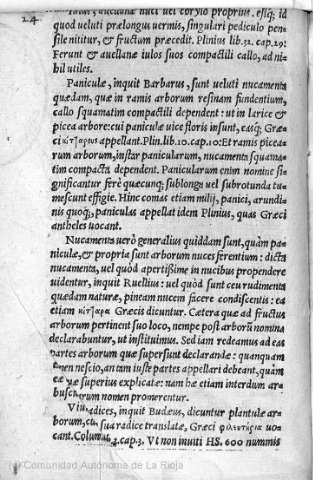 24
, auellanæ nuci uel corylo proprius. estq́; id
quod ueluti prælongus uermis, singulari pediculo pen
sile nititur, & fructum præcedit. Plinius lib.12. cap.29:
Ferunt & auellanæ iulos suos compactili callo, ad ni-
hil utiles.
Paniculæ, inquit Barbarus, sunt ueluti nucamenta
quædam, quæ in ramis arborum resinam fundentium,
callo squamatim compactili dependent: ut in larice &
picea arbore: cui paniculæ uice floris insunt, easq́; Græ-
ci κυττάρους appellant. Plin. lib.10. cap.10: Et ramis picea-
rum arborum, instar panicularum, nucamenta squama-
tim compacta dependent. Panicularum enim nomine si-
gnificantur ferè quæcunq; sublonga uel subrotunda tu-
mescunt effigie. Hinc comas etiam milij, panici, arundi-
nis quoq;, paniculas appellat idem Plinius, quas Græci
antheles uocant.
Nucamenta uerò generalius quiddam sunt, quàm pa-
niculæ, & propria sunt arborum nuces ferentium: dicta
nucamenta, uel quòd apertißimè in nucibus propendere
uidentur, inquit Ruellius: uel quòd sunt ceu rudimenta
quædam naturæ, pineam nucem facere condiscentis: ea
etiam κύτταρα Græcis dicuntur. Cætera quæ ad fructus
arborum pertinent suo loco, nempe post arborũ nomina
declarabuntur, ut instituimus. Sed iam redeamus ad eas
partes arborum quæ supersunt declarandæ: quanquam
men nescio, an tam iuste partes appellari debeant, quàm
eæ quæ superius explicatæ: nam hæ etiam interdum ar-
buscu rum nomen promerentur.
Viu radices, inquit Budæus, dicuntur plantulæ ar-
borum, cu sua radice translatæ, Græci uo-
cant. Columel. 4. cap.3. Vt non inuiti HS. 600 nummis
Comunidad Autónoma de La Rioja